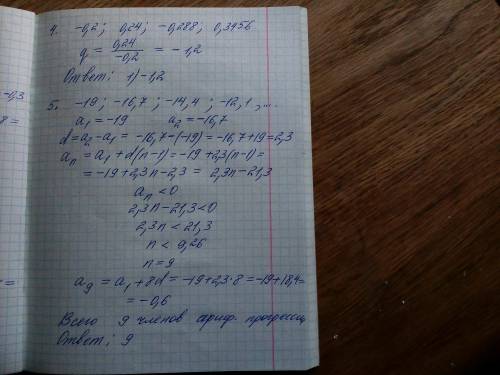 4. -0,2 ; 0,24 ; -0,288 ; 0,3456
q = 0,24/-0,2 = -1,2
Ответ: 1) -1,2
5. -19 ; -16,7 ; -14,4 ; -12,1 ,...
a₁ = -19 a₂ = -16,7
d = a₂ - a₁ = -16,7-(-19) = -16,7+19 = 2,3
aₙ = a₁ + d(n-1) = -19 + 2,3(n-1) =
= -19 + 2,3n - 2,3 = 2,3n - 21,3
aₙ < 0
2,3n - 21,3 < 0
2,3n < 21,3
n < 9,26
n = 9
a₉ = a₁ + 8d = -19 + 2,3·8 = -19 + 18,4 =
= -0,6
Всего 9 членов ариф. прогрессии
Ответ: 9
-0,3
8 =
=